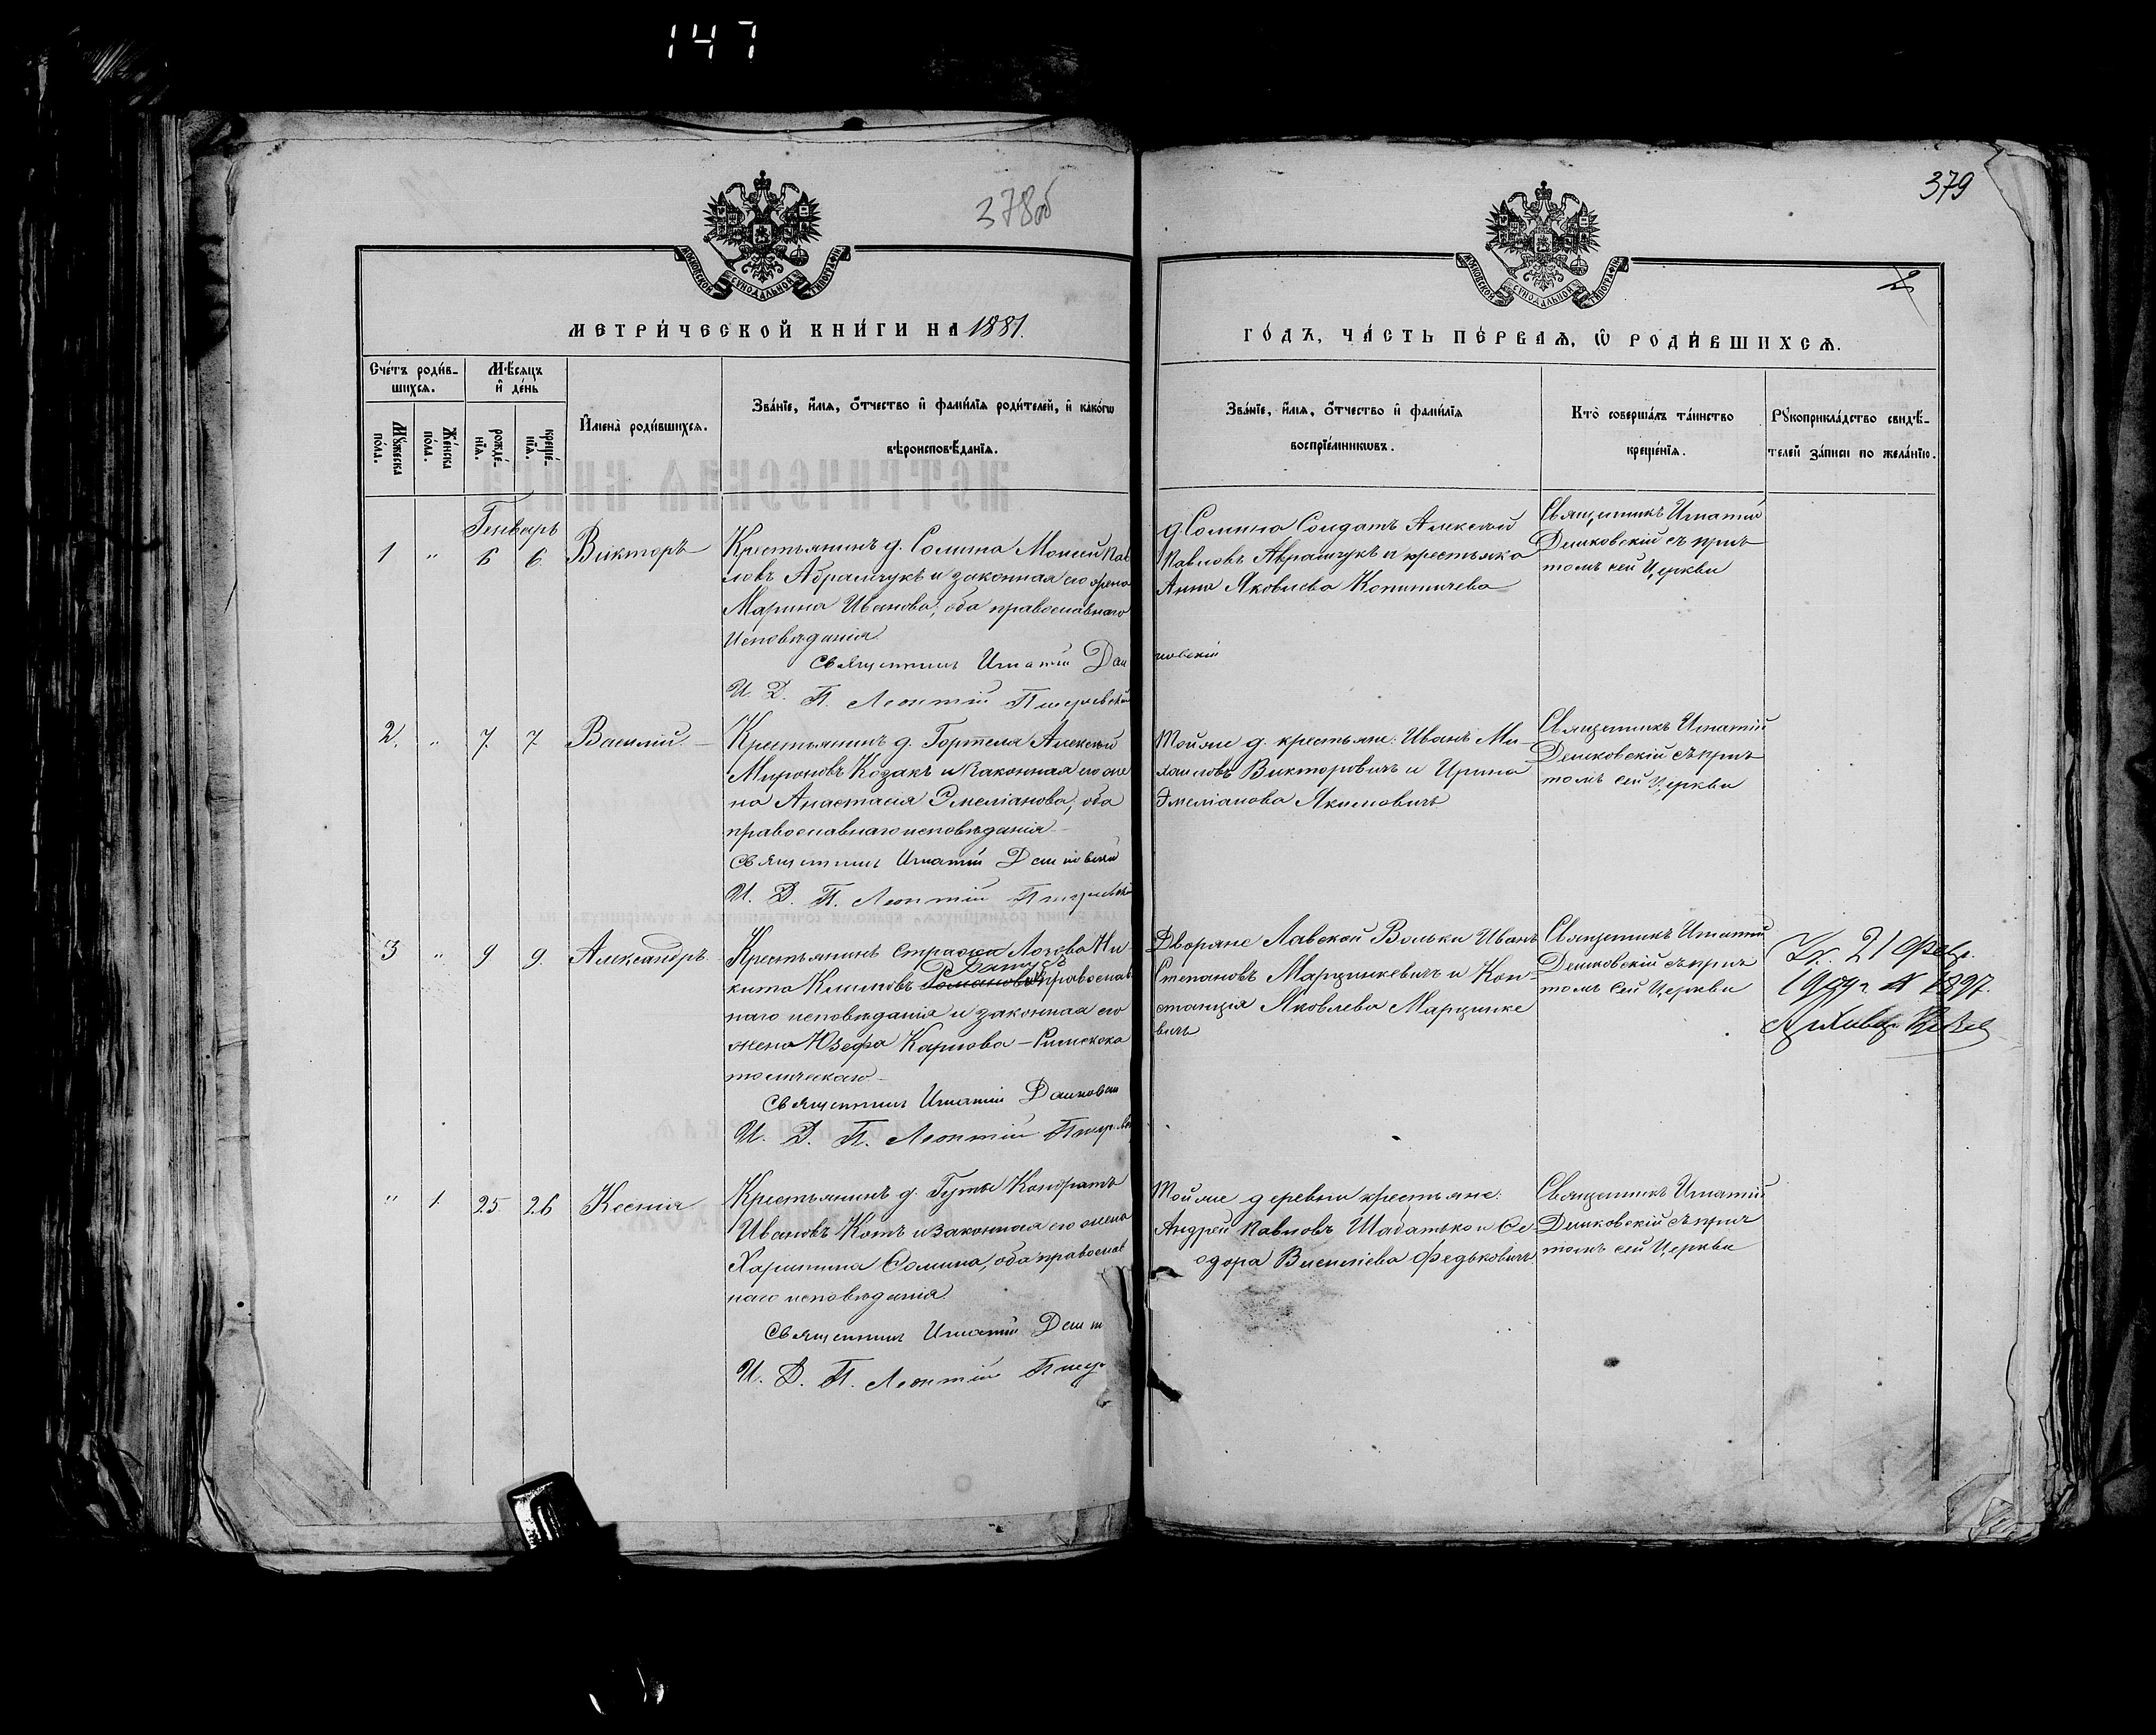 147
378об
379
2
МОСКОВСКОЙ СѴНОДАЛЬНОЙ ТИПОГРАФІИ
МОСКОВСКОЙ СѴНОДАЛЬНОЙ ТИПОГРАФІИ
МЕТРИ́ЧЕСКОЙ КНИ́ГИ НА 1881.
ГО́ДЪ, ЧА́СТЬ ПЕ́РВАѦ, Ѡ҆ РОДИ́ВШИХСѦ.
Сче́тъ роди́в-
шихсѧ.
Мѣ́сѧцъ
и҆ де́нь
Мꙋ́жеска
по́ла.
Же́нска
по́ла.
рожде́-
нїѧ.
креще́-
нїѧ.
И҆мена̀ роди́вшихсѧ.
Зва́нїе, и҆́мѧ, ѻ҆́тчество и҆ фами́лїѧ роди́телей, и҆ како́гѡ
вѣроисповѣ́данїѧ.
Зва́нїе, и҆́мѧ, ѻ҆́тчество и҆ фами́лїѧ
воспрїе́мникѡвъ.
Кто̀ соверша́лъ та́инство
креще́нїѧ.
Рꙋкоприкла́дство свидѣ́-
телей за́писи по жела́нїю.
Генварь
1 " 6 6 Викторъ
Крестьянинъ д. Солина Моисей Пав
ловъ Абрамчукъ и законная его жена
Марина Иванова, оба православнаго
исповѣданія.
Священникъ Игнатій Даш
ковскій
И. Д. П. Леонтій
д. Солина Солдатъ Алексѣй
Павловъ Аврамчукъ и крестьянка
Анна Яковлева
Священникъ Игнатій
Дашковскій съ прич
томъ сей Церкви
2. " 7 7 Василій.
Крестьянинъ д. Алексѣй
Мироновъ Козакъ и законная его же
на Анастасія Эмеліанова, оба
православнаго исповѣданія
Священникъ Игнатій Дашковскій
И. Д. П. Леонтій
Тойже д. крестьяне: Иванъ Ми-
хаиловъ Викторовичъ и Ирина
Эмеліанова Якимовичъ
Священникъ Игнатій
Дашковскій съ прич
томъ сей Церкви
3 " 9 9. Александръ.
Крестьянинъ стража Ни-
кита Климовъ православ
наго исповѣданія и законная его
жена Юзефа Карлова – Римскока
толическаго
Священникъ Игнатій Дашковскій
И. Д. П. Леонтій
Дворяне Лавской Вольки Иванъ
Степановъ Марцинкевичъ и Кон-
станція Яковлева Марцинке
вичъ
Священникъ Игнатій
Дашковскій съ прич
томъ сей Церкви
21 Февр.
" 1 25 26 Ксенія
Крестьянинъ д. Гуты Кондратъ
Ивановъ Котъ и законная его жена
Харитина Сомина, оба православ
наго исповѣданія.
Священникъ Игнатій Даш
И. Д. П. Леонтій
Тойже деревни крестьяне:
Андрей Павловъ Шабатько и Ѳе
одора Василіева Федьковичъ.
Священникъ Игнатій
Дашковскій съ прич
томъ сей Церкви